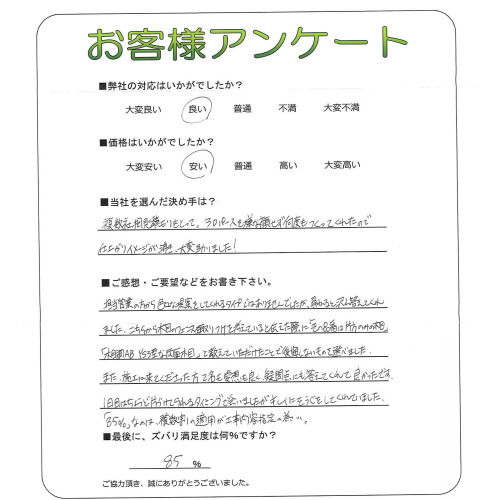 お客様アンケート
■弊社の対応はいかがでしたか?
大変良い 良い 普通 不満 大変不満
■価格はいかがでしたか?
大変安い 安い 普通 高い 大変高い
■当社を選んだ決め手は?
複数社相見積もりをとって、3Dパースも嫌な顔せず何度もつくってくれたので
仕上がりイメージが湧き、大変助かりました!
■ご感想・ご要望などをお書き下さい。
担当営業の方から色々な提案をしてくれるタイプではありませんでしたが、尋ねると沢山答えてくれ
ました。こちらから木目のフェンス取りつけを考えていると伝えた際に「その品番は片方のみの木目、
教えていただけたことで後悔しないもので選べました。
また、施工に来てくださった方々も愛想も良く、疑問点にも答えてくれて良かったです。
1日目はちらほら片付けてられるタイミングで会いましたがキレイにそうじをしてくれていました。
「85%」なのは、複数割の適用が工事内容指定の為…。
■最後に、ズバリ満足度は何%ですか?
85 %
ご協力頂き、誠にありがとうございました。